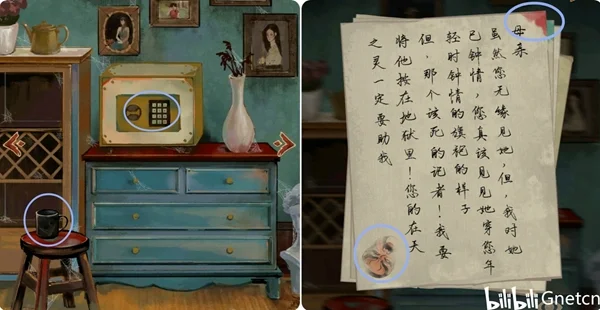 母亲
虽然您无缘见她，但，我对她
已钟情，您真该见见她穿您年
轻时钟情的旗袍的样子
但，那个该死的记者！我要
将他按在地狱里！您的在天
之灵一定要助我
bilibili Gnetcn